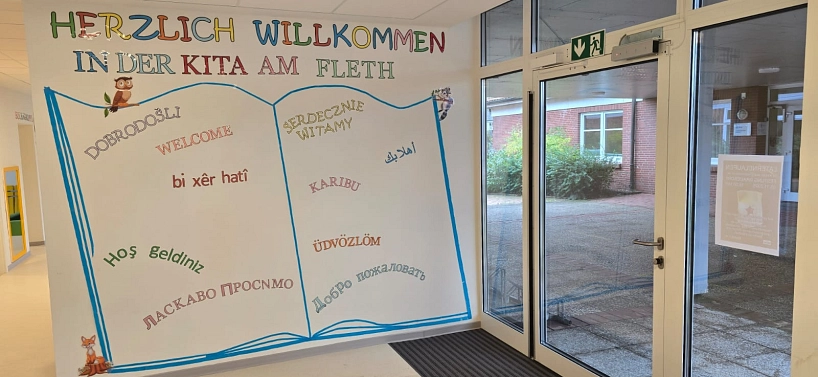 HERZLICH WILLKOMMEN
IN DER KITA AM FLETH
DOBRODOŠLI
WELCOME
bi xêr hatî
Hoş geldiniz
Ласкаво Просимо
SERDECZNIE
WITAMY
أهلا بك
KARIBU
ÜDVÖZLÖM
Добро пожаловать